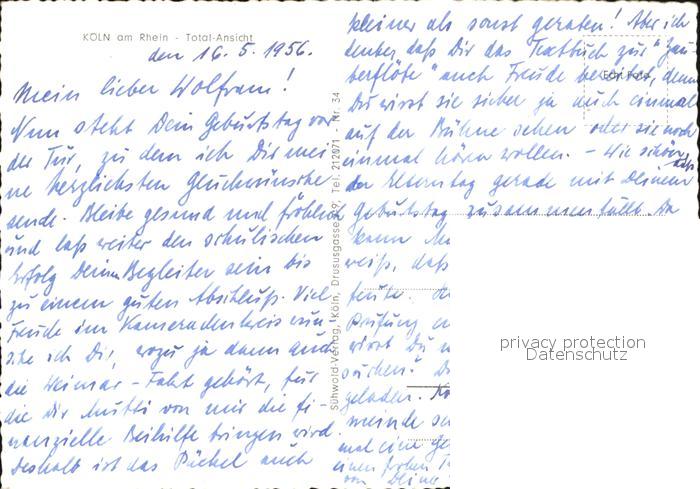 KÖLN am Rhein - Total-Ansicht
den 16. 5. 1956.
Mein lieber Wolfram!
Nun steht Dein Geburtstag vor
der Tür, zu dem ich Dir mei-
ne herzlichsten Glückwünsche
sende. Bleibe gesund und fröhlich
und laß weiter den schulischen
Erfolg Deinen Begleiter sein bis
zu einem guten Abschluß. Viel
Freude im Kameradenkreis wün-
sche ich Dir, wozu ja dann auch
die Weimar-Fahrt gehört, für
die Dir Mutti von mir die fi-
nanzielle Beihilfe bringen wird.
Deshalb ist das Päckel auch
kleiner als sonst geraten! Aber ich
denke, daß Dir das Textbuch zur "Zau-
berflöte" auch Freude bereitet, denn
Du wirst sie sicher ja auch einmal
auf der Bühne sehen oder sie noch
einmal hören wollen. - Wie schön, daß
der Elterntag gerade mit Deinem
Geburtstag zusammenfällt. Da
kann
weiß, daß
heute.
Prüfung
wirst Du
suchen?
geladen.
meinde
mal eine
einen frohen
von Deine
Sühwold-Verlag, Köln, Drususgasse 9, Tel. 212071 Nr. 34
Echt Foto
privacy protection
Datenschutz